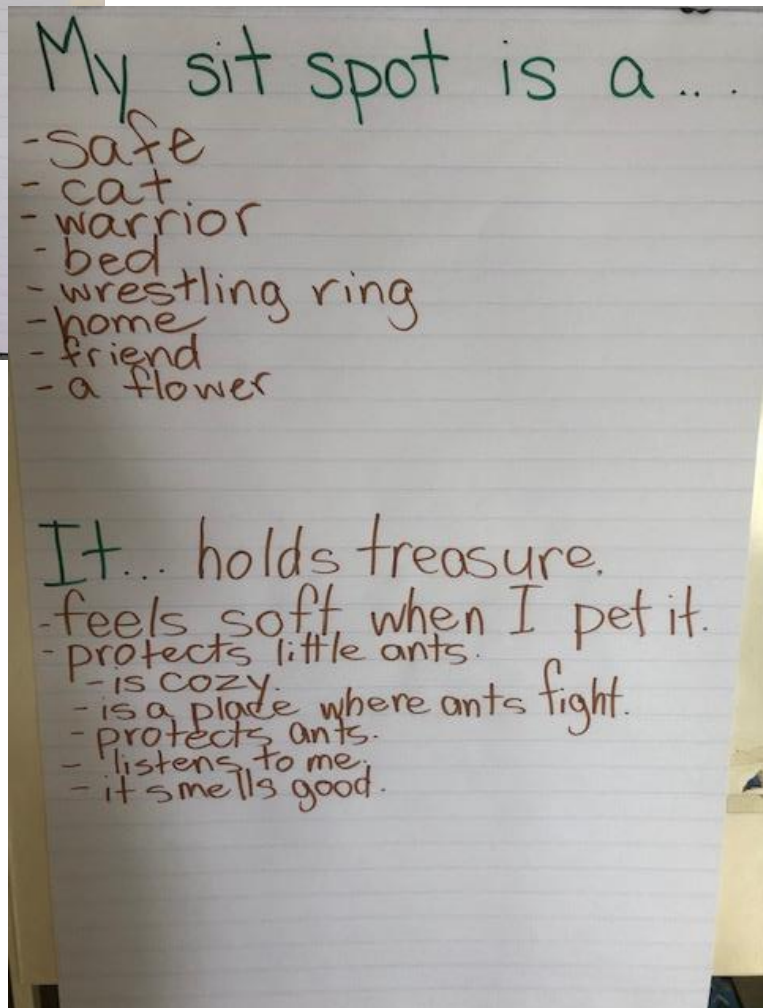 My sit spot is a...
- safe
- cat
- warrior
- bed
- wrestling ring
- home
- friend
- a flower
It... holds treasure.
- feels soft when I pet it.
- protects little ants.
- is cozy.
- is a place where ants fight.
- protects ants.
- listens to me.
- it smells good.